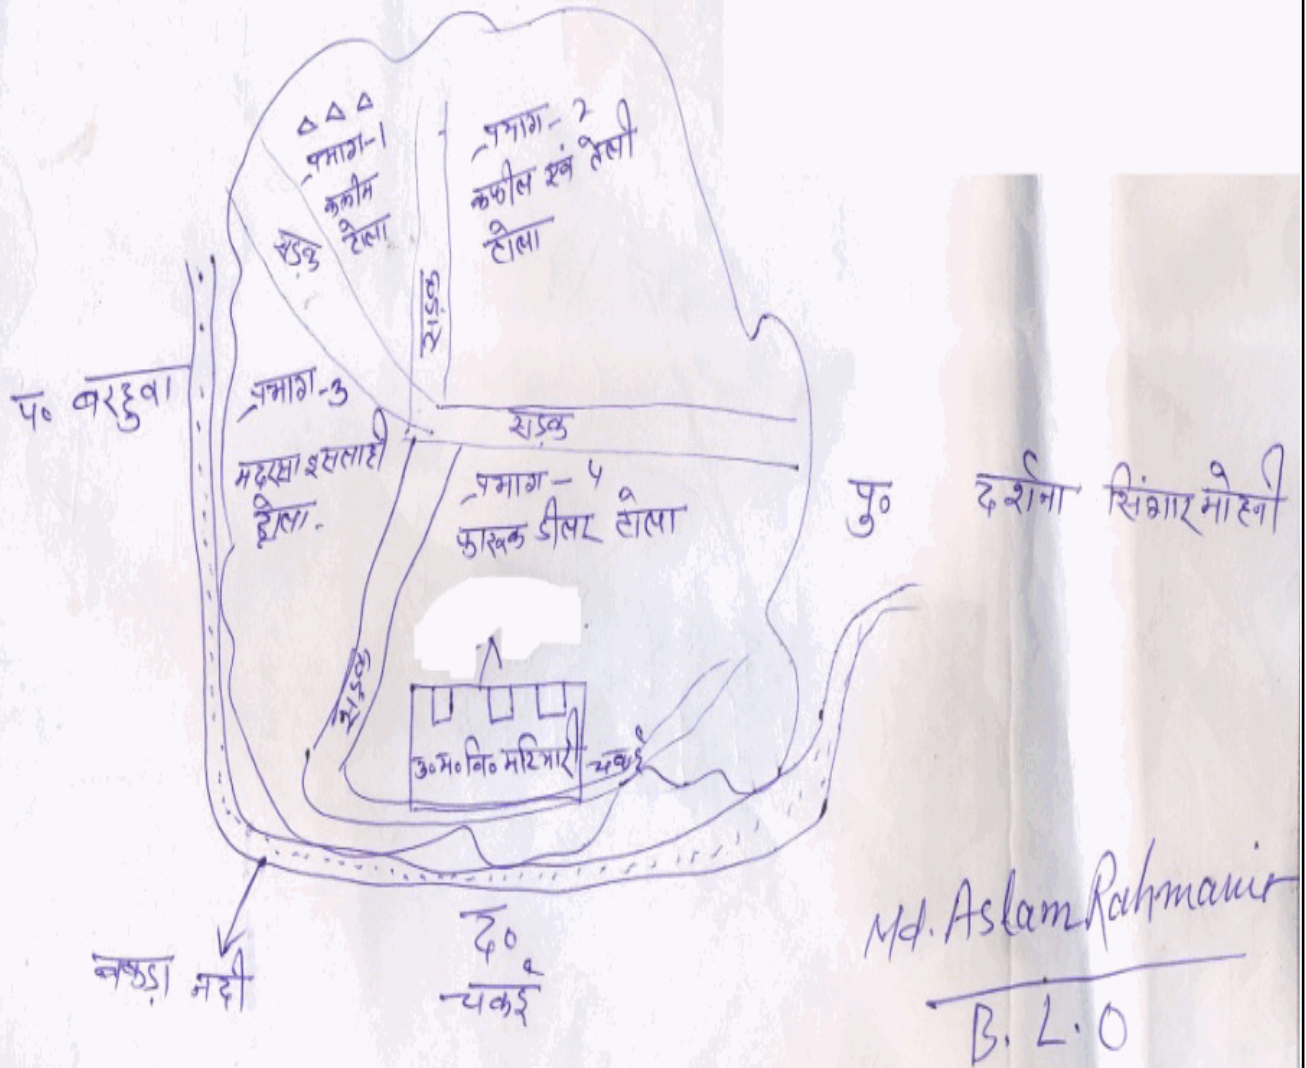 प्रभाग-1
कलीम
टोला
सड़क
प्रभाग-2
कफील एवं तेली
टोला
सड़क
प० बरहुवा
प्रभाग-3
मदरसा इसलाही
टोला.
सड़क
प्रभाग-4
फारूक डीलर टोला
पु० दर्शना सिंगारमोहनी
सड़क
उ०म०वि० मटियारी चकई
द०
चकई
बकड़ा नदी
Md. Aslam Rahmani
B.L.O